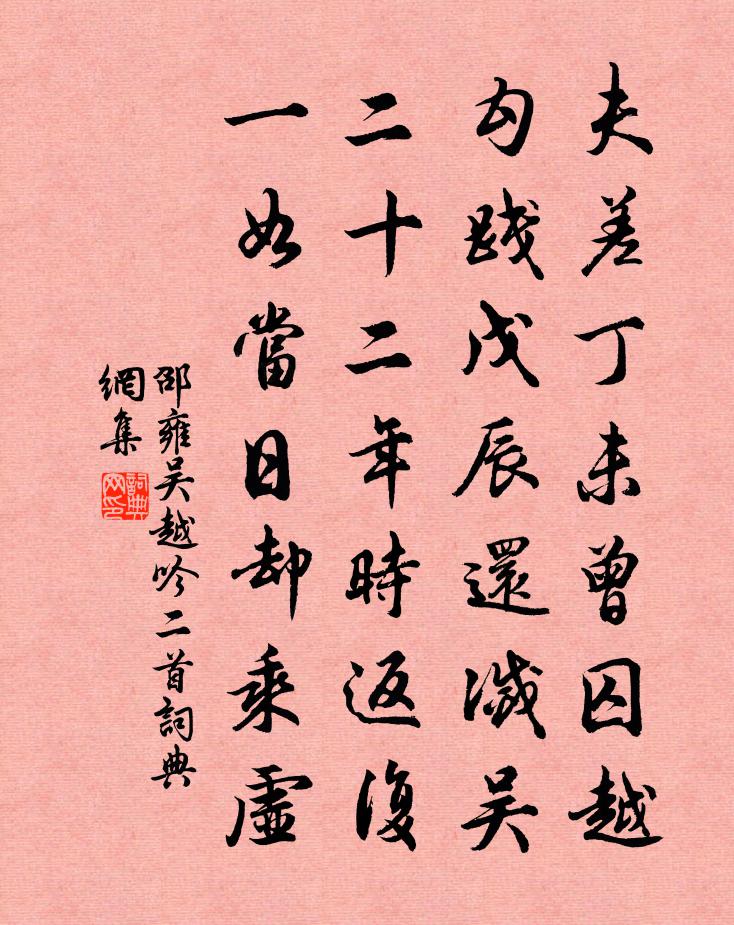 夫差丁未曾囚越
勾踐戊辰還滅吴
二十二年時返復
一如當日却乘虛
邵雍吴越吟二首詞典
網集
詞典网印